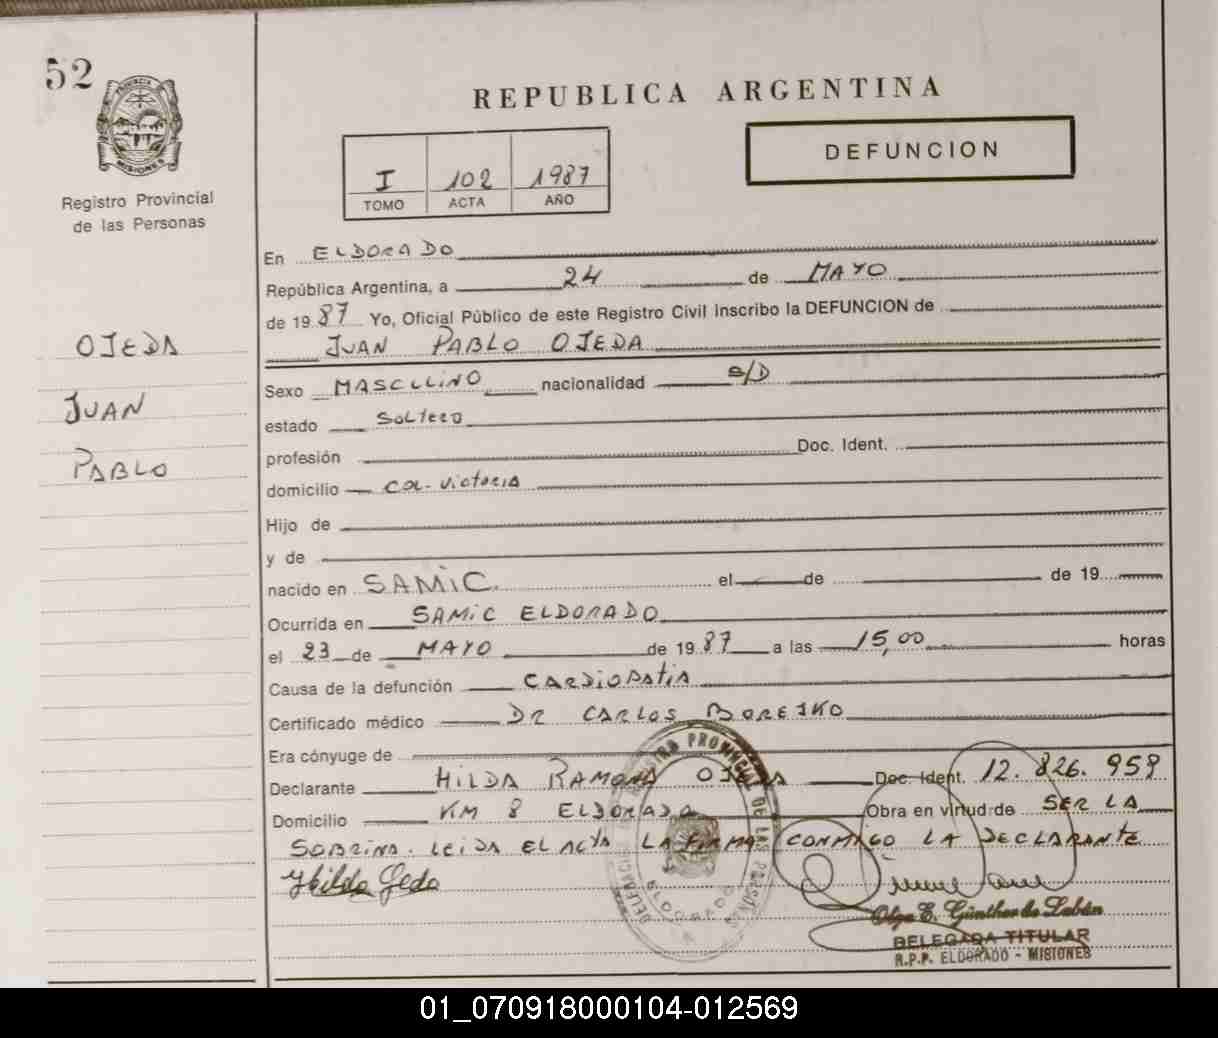 52
PROVINCIA
MISIONES
Registro Provincial
de las Personas
OJEDA
JUAN
PABLO
REPUBLICA ARGENTINA
I 102 1987
TOMO ACTA AÑO
DEFUNCION
En ELDORADO
República Argentina, a 24 de MAYO
de 19 87 Yo, Oficial Público de este Registro Civil inscribo la DEFUNCION de
JUAN PABLO OJEDA
Sexo MASCULINO nacionalidad S/D
estado Soltero
profesión Doc. Ident.
domicilio COL-Victoria
Hijo de
y de
nacido en SAMIC. el de de 19
Ocurrida en SAMIC ELDORADO
el 23 de MAYO de 1987 a las 15,00 horas
Causa de la defunción CARDIOPATIA
Certificado médico DR CARLOS BOREJKO
Era cónyuge de
Declarante HILDA RAMONA OJEDA Doc. Ident. 12.826.959
Domicilio KM 8 ELDORADO Obra en virtud de SER LA
SOBRINA. LEIDA EL ACTA LA FIRMA CONMIGO LA DECLARANTE
REGISTRO PROVINCIAL DE LAS PERSONAS
DELEGACION
ELDORADO
Olga E. Günther de Labán
DELEGADA TITULAR
R.P.P. ELDORADO - MISIONES
01_070918000104-012569